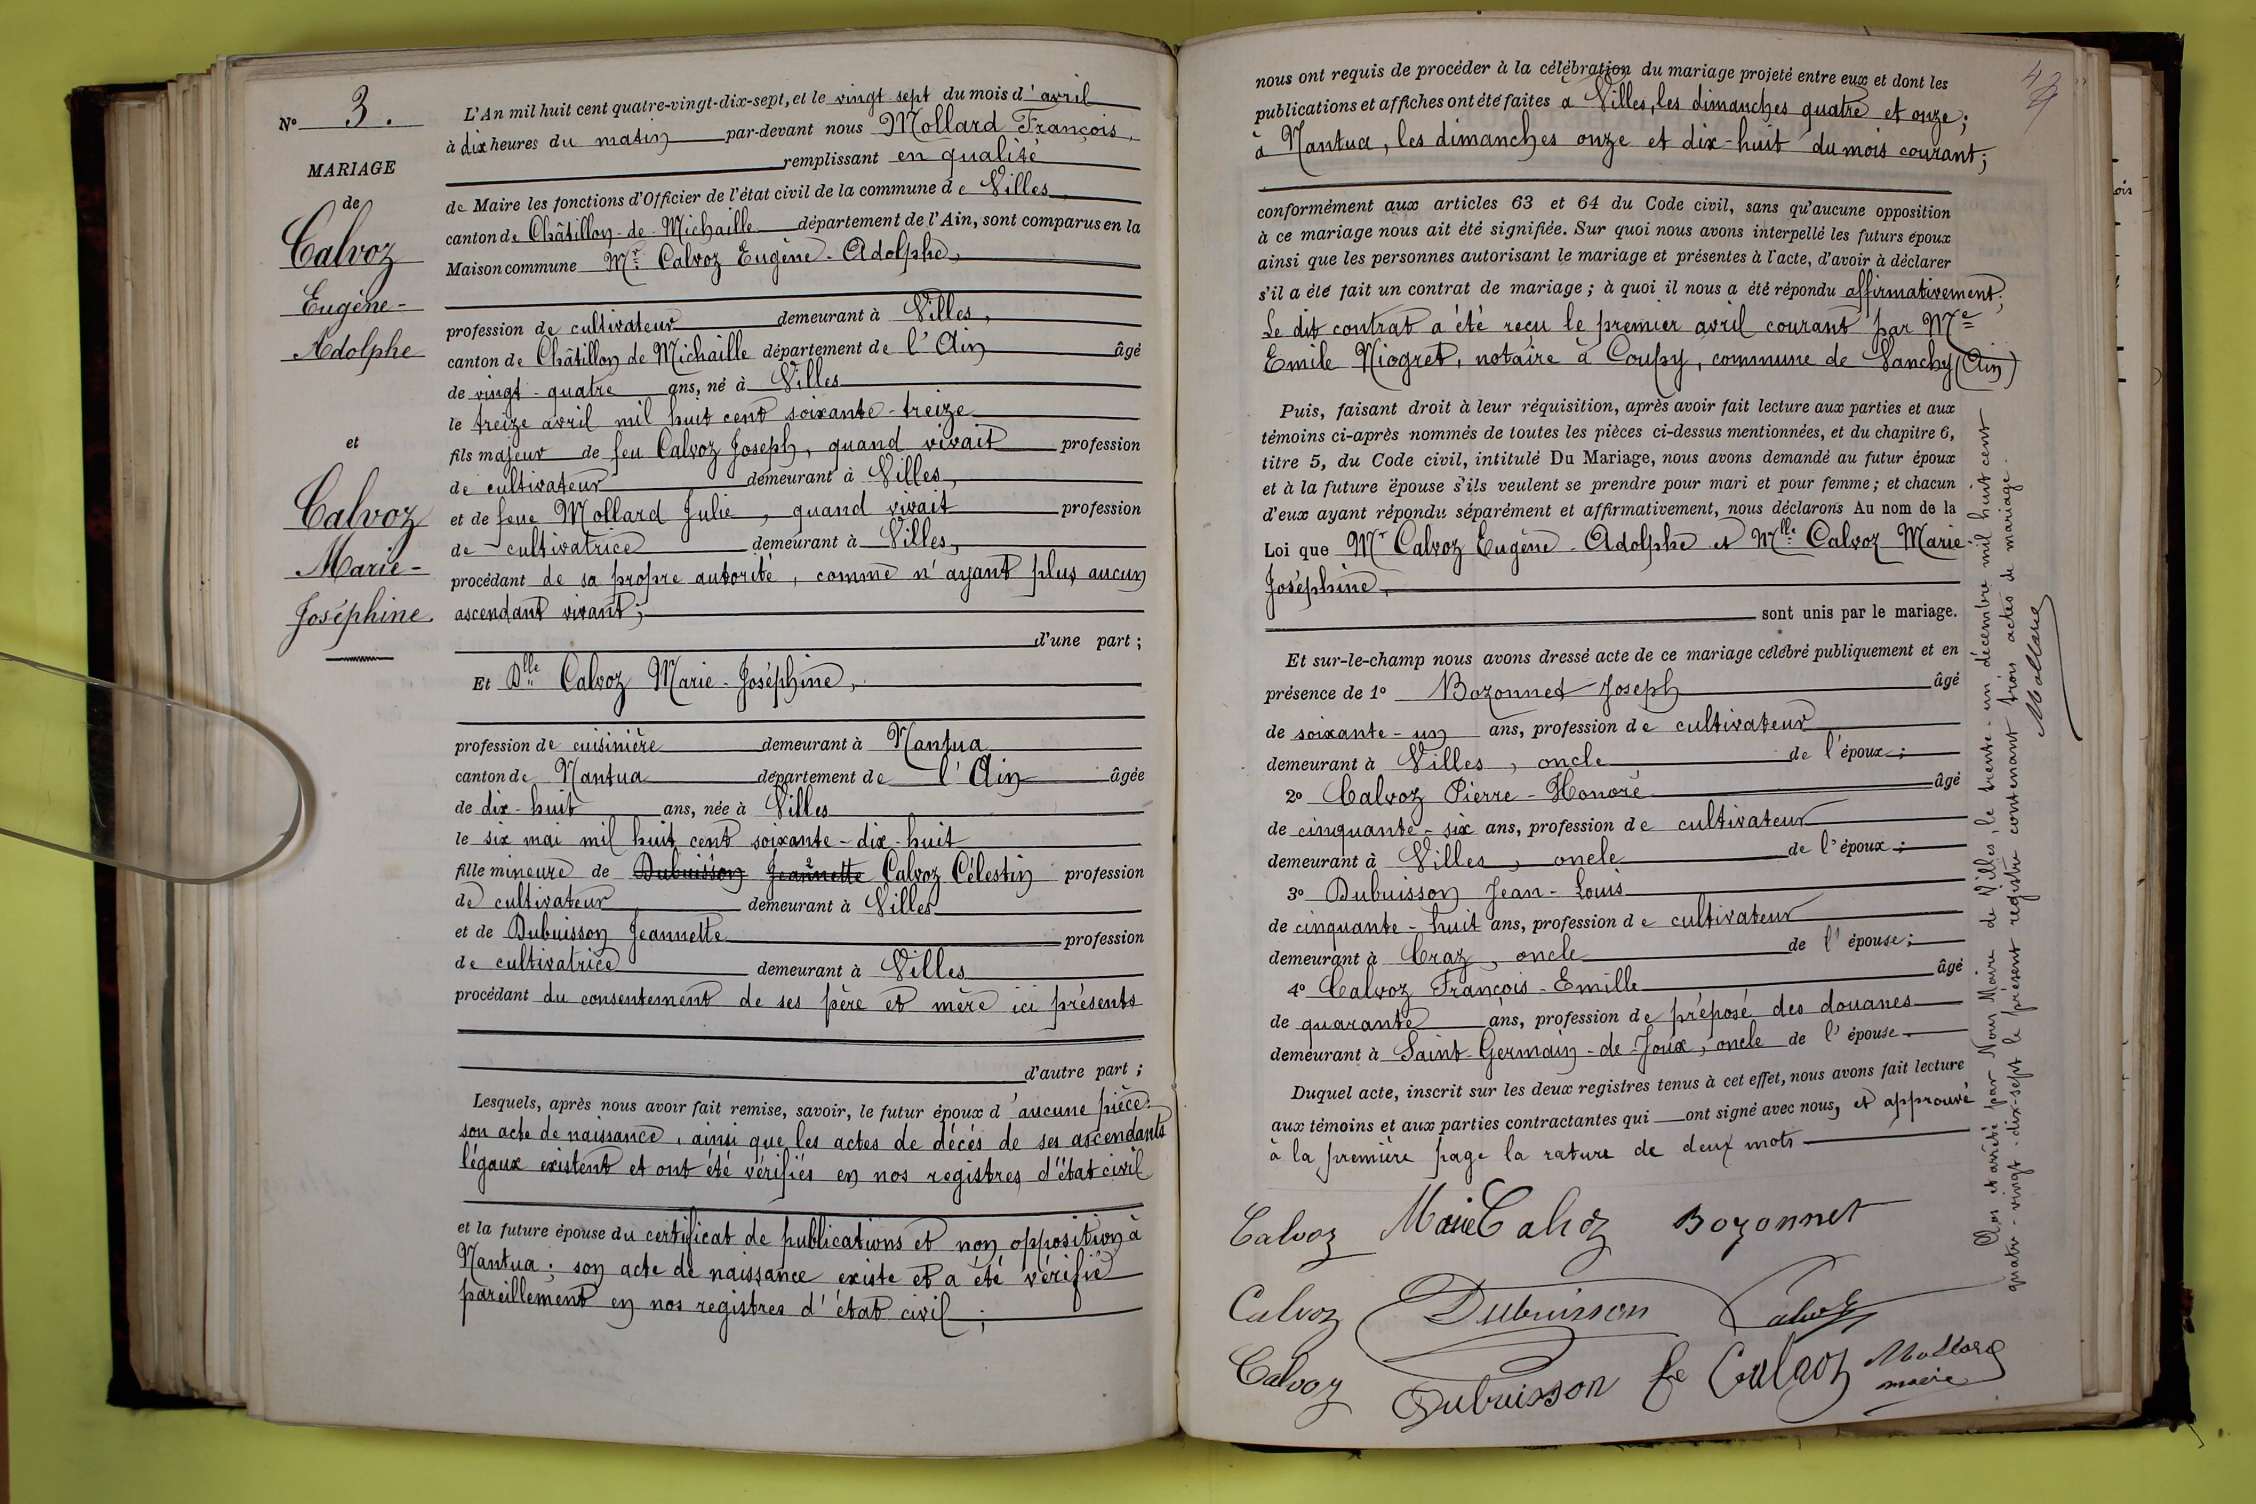 N° 3.
MARIAGE
de
Calvoz
Eugène-
Adolphe
et
Calvoz
Marie-
Joséphine
L'An mil huit cent quatre-vingt-dix-sept, et le vingt sept du mois d'avril
à dix heures du matin par-devant nous Mollard François,
remplissant en qualité
de Maire les fonctions d'Officier de l'état civil de la commune de Villes,
canton de Châtillon-de-Michaille département de l'Ain, sont comparus en la
Maison commune Mr Calvoz Eugène-Adolphe,
profession de cultivateur demeurant à Villes,
canton de Châtillon de Michaille département de l'Ain âgé
de vingt-quatre ans, né à Villes
le treize avril mil huit cent soixante-treize
fils majeur de feu Calvoz Joseph, quand vivait profession
de cultivateur demeurant à Villes,
et de feue Mollard Julie, quand vivait profession
de cultivatrice demeurant à Villes,
procédant de sa propre autorité, comme n'ayant plus aucun
ascendant vivant;
d'une part;
Et Dlle Calvoz Marie-Joséphine,
profession de cuisinière demeurant à Nantua
canton de Nantua département de l'Ain âgée
de dix-huit ans, née à Villes
le six mai mil huit cent soixante-dix-huit
fille mineure de Dubuisson Jeannette Calvoz Célestin profession
de cultivateur demeurant à Villes
et de Dubuisson Jeannette profession
de cultivatrice demeurant à Villes
procédant du consentement de ses père et mère ici présents
d'autre part;
Lesquels, après nous avoir fait remise, savoir, le futur époux d'aucune pièce:
son acte de naissance, ainsi que les actes de décès de ses ascendants
légaux existent et ont été vérifiés en nos registres d'état civil
et la future épouse du certificat de publications et non opposition à
Nantua; son acte de naissance existe et a été vérifié
pareillement en nos registres d'état civil;
nous ont requis de procéder à la célébration du mariage projeté entre eux et dont les
publications et affiches ont été faites à Villes, les dimanches quatre et onze;
à Nantua, les dimanches onze et dix-huit du mois courant;
conformément aux articles 63 et 64 du Code civil, sans qu'aucune opposition
à ce mariage nous ait été signifiée. Sur quoi nous avons interpellé les futurs époux
ainsi que les personnes autorisant le mariage et présentes à l'acte, d'avoir à déclarer
s'il a été fait un contrat de mariage; à quoi il nous a été répondu affirmativement;
Le dit contrat a été reçu le premier avril courant par Me
Emile Niogret, notaire à Coupy, commune de Vanchy (Ain)
Puis, faisant droit à leur réquisition, après avoir fait lecture aux parties et aux
témoins ci-après nommés de toutes les pièces ci-dessus mentionnées, et du chapitre 6,
titre 5, du Code civil, intitulé Du Mariage, nous avons demandé au futur époux
et à la future épouse s'ils veulent se prendre pour mari et pour femme; et chacun
d'eux ayant répondu séparément et affirmativement, nous déclarons Au nom de la
Loi que Mr Calvoz Eugène-Adolphe et Mlle Calvoz Marie-
Joséphine,
sont unis par le mariage.
Et sur-le-champ nous avons dressé acte de ce mariage célébré publiquement et en
présence de 1° Bozonnet Joseph âgé
de soixante-un ans, profession de cultivateur
demeurant à Villes, oncle de l'époux;
2° Calvoz Pierre-Honoré âgé
de cinquante-six ans, profession de cultivateur
demeurant à Villes, oncle de l'époux;
3° Dubuisson Jean-Louis
de cinquante-huit ans, profession de cultivateur
demeurant à Craz, oncle de l'épouse;
4° Calvoz François-Emille âgé
de quarante ans, profession de préposé des douanes
demeurant à Saint-Germain-de-Joux, oncle de l'épouse
Duquel acte, inscrit sur les deux registres tenus à cet effet, nous avons fait lecture
aux témoins et aux parties contractantes qui ont signé avec nous, et approuvé
à la première page la rature de deux mots
Calvoz Marie Calvoz Bozonnet
Calvoz Dubuisson Calvoz
Calvoz Dubuisson fe Calvoz Mollard
maire
Clos et arrêté par Nous Maire de Villes, le trente-un décembre mil huit cent
quatre-vingt-dix-sept le présent registre contenant trois actes de mariage.
Mollard